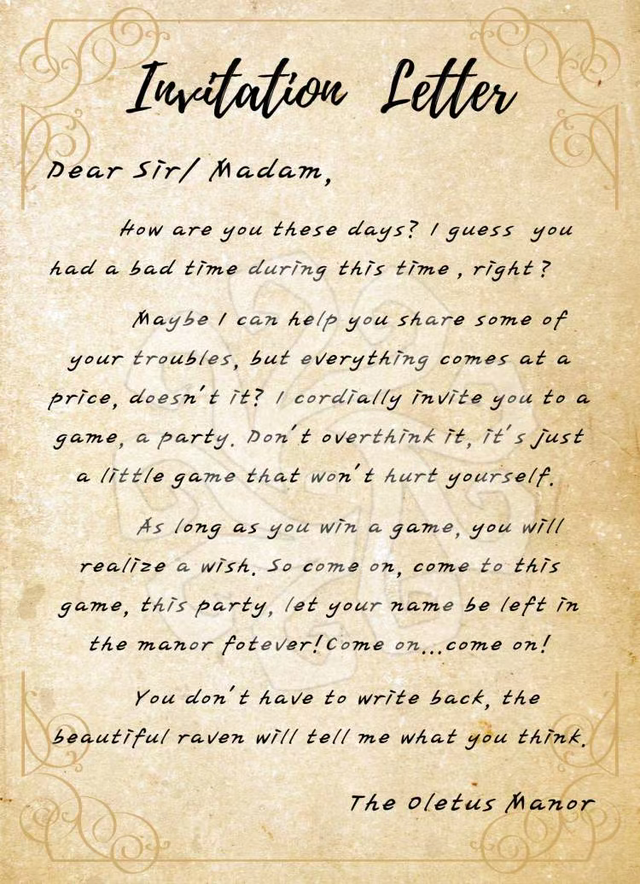 Invitation Letter
Dear Sir/ Madam,
How are you these days? I guess you
had a bad time during this time , right?
Maybe I can help you share some of
your troubles, but everything comes at a
price, doesn't it? I cordially invite you to a
game, a party. Don't overthink it, it's just
a little game that won't hurt yourself.
As long as you win a game, you will
realize a wish. So come on, come to this
game, this party, let your name be left in
the manor fotever! Come on...come on!
You don't have to write back, the
beautiful raven will tell me what you think.
The Oletus Manor